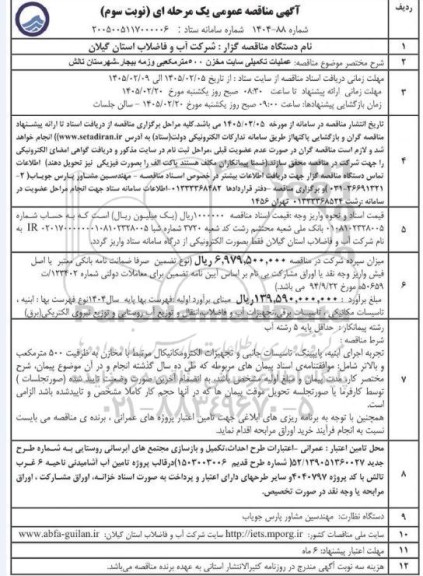 آگهی مناقصه عمومی یک مرحله ای (نوبت سوم)
شماره ۸۸-۱۴۰۴ شماره سامانه ستاد : ۲۰۰۵۰۰۵۱۱۷۰۰۰۰۰۶
ردیف
۱ نام دستگاه مناقصه گزار : شرکت آب و فاضلاب استان گیلان
۲ شرح مختصر موضوع مناقصه: عملیات تکمیلی سایت مخزن ۵۰۰مترمکعبی وزمه بیجار شهرستان تالش
۳ مهلت زمانی دریافت اسناد مناقصه از سایت ستاد : از تاریخ ۱۴۰۵/۰۲/۰۵ لغایت ۱۴۰۵/۰۲/۰۹
مهلت زمانی ارائه پیشنهاد تا ساعت ۰۸:۳۰ صبح روز یکشنبه مورخ ۱۴۰۵/۰۲/۲۰
زمان بازگشایی پیشنهادها: ساعت ۰۹:۰۰ صبح روز یکشنبه مورخ ۱۴۰۵/۰۲/۲۰ - سالن جلسات
۴ تاریخ انتشار مناقصه در سامانه از مورخه ۱۴۰۵/۰۲/۰۵ می باشد.کلیه مراحل برگزاری مناقصه از دریافت اسناد تا ارائه پیشنهاد
مناقصه گران و بازگشایی پاکتهاز طریق سامانه تدارکات الکترونیکی دولت(ستاد) به آدرس (www.setadiran.ir) انجام خواهد
شد و لازم است مناقصه گران در صورت عدم عضویت قبلی ،مراحل ثبت نام در سایت مذکور و دریافت گواهی امضای الکترونیکی
را جهت شرکت در مناقصه محقق سازند.(ضمنا پیمانکاران مکلف هستند پاکت الف را بصورت فیزیکی نیز تحویل دهند) اطلاعات
تماس دستگاه مناقصه گزار جهت دریافت اطلاعات بیشتر در خصوص اسناد مناقصه - مهندسین مشاور پارس جویاب( ۲-
۰۳۱-۳۶۶۹۱۳۲۱) و برگزاری مناقصه -دفتر قراردادها ۰۱۳۳۳۳۶۸۴۸۲ -اطلاعات سامانه ستاد جهت انجام مراحل عضویت در
سامانه :رشت ۰۱۳۳۳۳۶۸۵۲۴ تهران ۱۴۵۶
۵ قیمت اسناد و نحوه واریز وجه :قیمت اسناد مناقصه ۱۰۰۰۰۰۰ریال (یک میلیون ریال) است که به حساب شماره
۰۱۰۸۱۰۲۳۲۸۰۰۵ بانک ملی شعبه محتشم رشت کد شعبه ۳۷۲۰ شماره شبا IR ۰۲۰۱۷۰۰۰۰۰۰۰۱۰۸۱۰۲۳۲۸۰۰۵ به
نام شرکت آب و فاضلاب استان گیلان فقط بصورت الکترونیکی از درگاه سامانه ستاد واریز گردد.
۶ میزان سپرده شرکت در مناقصه ۶,۹۷۹,۵۰۰,۰۰۰ ریال (نوع تضمین صرفا ضمانت نامه بانکی معتبر یا اصل
فیش واریز وجه نقد یا اوراق مشارکت بی نام بر اساس آیین نامه تضمین برای معاملات دولتی شماره ۱۲۳۴۰۲/ت
۵۰۶۵۹ه مورخ ۹۴/۹/۲۲ می باشد)
مبلغ برآورد : ۱۳۹,۵۹۰,۰۰۰,۰۰۰ریال مبنای برآورد اولیه: فهرست بها پایه سال۱۴۰۴نوع فهرست بها : ابنیه ،
تاسیسات مکانیکی ، تاسیسات برقی،تجهیزات آب و فاضلاب،انتقال و توزیع آب روستایی و توزیع نیروی الکتریکی(برق)
۷ رشته پیمانکار : حداقل پایه ۵ رشته آب
شرط مناقصه :
تجربه اجرای ابنیه، پایپینگ، تاسیسات جانبی و تجهیزات الکترومکانیکال مرتبط با مخازن به ظرفیت ۵۰۰ مترمکعب
و بالاتر شامل: موافقتنامه‌ی اسناد پیمان های مربوطه که طی ده سال گذشته انجام و در آن موضوع پیمان، شرح
مختصر کار، مدت پیمان و مبلغ اولیه مشخص باشد، به انضمام آخرین صورت وضعیت تایید شده (صورتجلسات )
توسط کارفرما یا صورتجلسه تحویل موقت پیمان ها که در آنها حجم کار کاملا مشخص و تاییدشده باشد الزامی
است.
همچنین با توجه به برنامه ریزی های ابلاغی جهت تامین اعتبار پروژه های عمرانی ، برنده ی مناقصه می بایست
نسبت به انجام فرآیند خرید اوراق مرابحه اقدام نماید.
۸ محل تامین اعتبار : عمرانی -اعتبارات طرح احداث،تکمیل و بازسازی مجتمع های آبرسانی روستایی به شماره طرح
تالش با کد پروژه ۴۰۴۰۷۹۷و سایر طرحهای دارای اعتبار و پرداخت به صورت اسناد خزانه، اوراق مشارکت ، اوراق
مرابحه یا وجه نقد در صورت تخصیص.
۹ دستگاه نظارت: مهندسین مشاور پارس جویاب
۱۰ سایت ملی مناقصات کشور: http://iets.mporg.ir سایت شرکت آب و فاضلاب استان گیلان: www.abfa-guilan.ir
۱۱ مهلت اعتبار پیشنهاد: ۶ ماه
۱۲ هزینه سه نوبت آگهی مندرج در روزنامه کثیرالانتشار استانی به عهده برنده مناقصه می‌باشد.